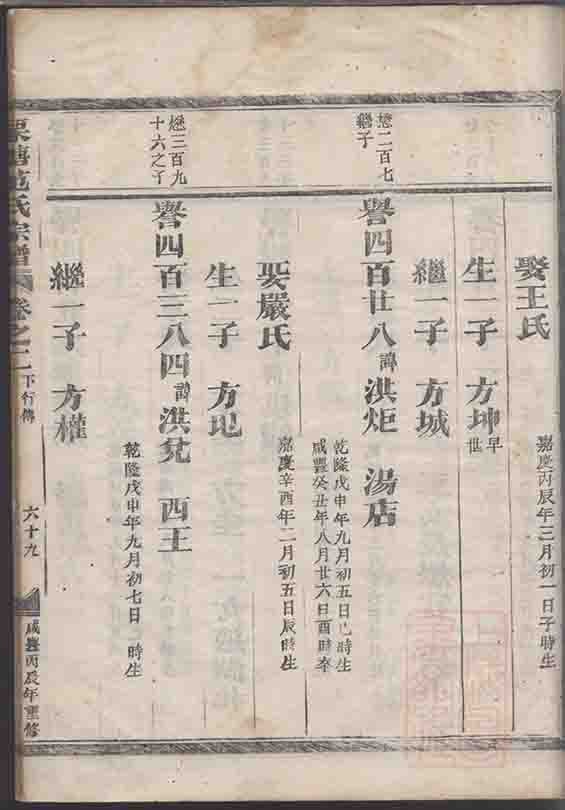 娶王氏
嘉慶丙辰年三月初一日子時生
生一子 方坤早世
繼一子 方城
懋二百七
繼子
譽四百廿八諱洪炬 湯店
乾隆戊申年九月初五日巳時生
咸豐癸丑年八月廿六日酉時卒
娶嚴氏
嘉慶辛酉年二月初五日辰時生
生一子 方圯
懋三百九
十六之子
譽四百三八四諱洪兊 西王
乾隆戊申年九月初七日 時生
繼一子 方權
范氏宗譜 卷之二 下行傳 六十九 咸豐丙辰年重修